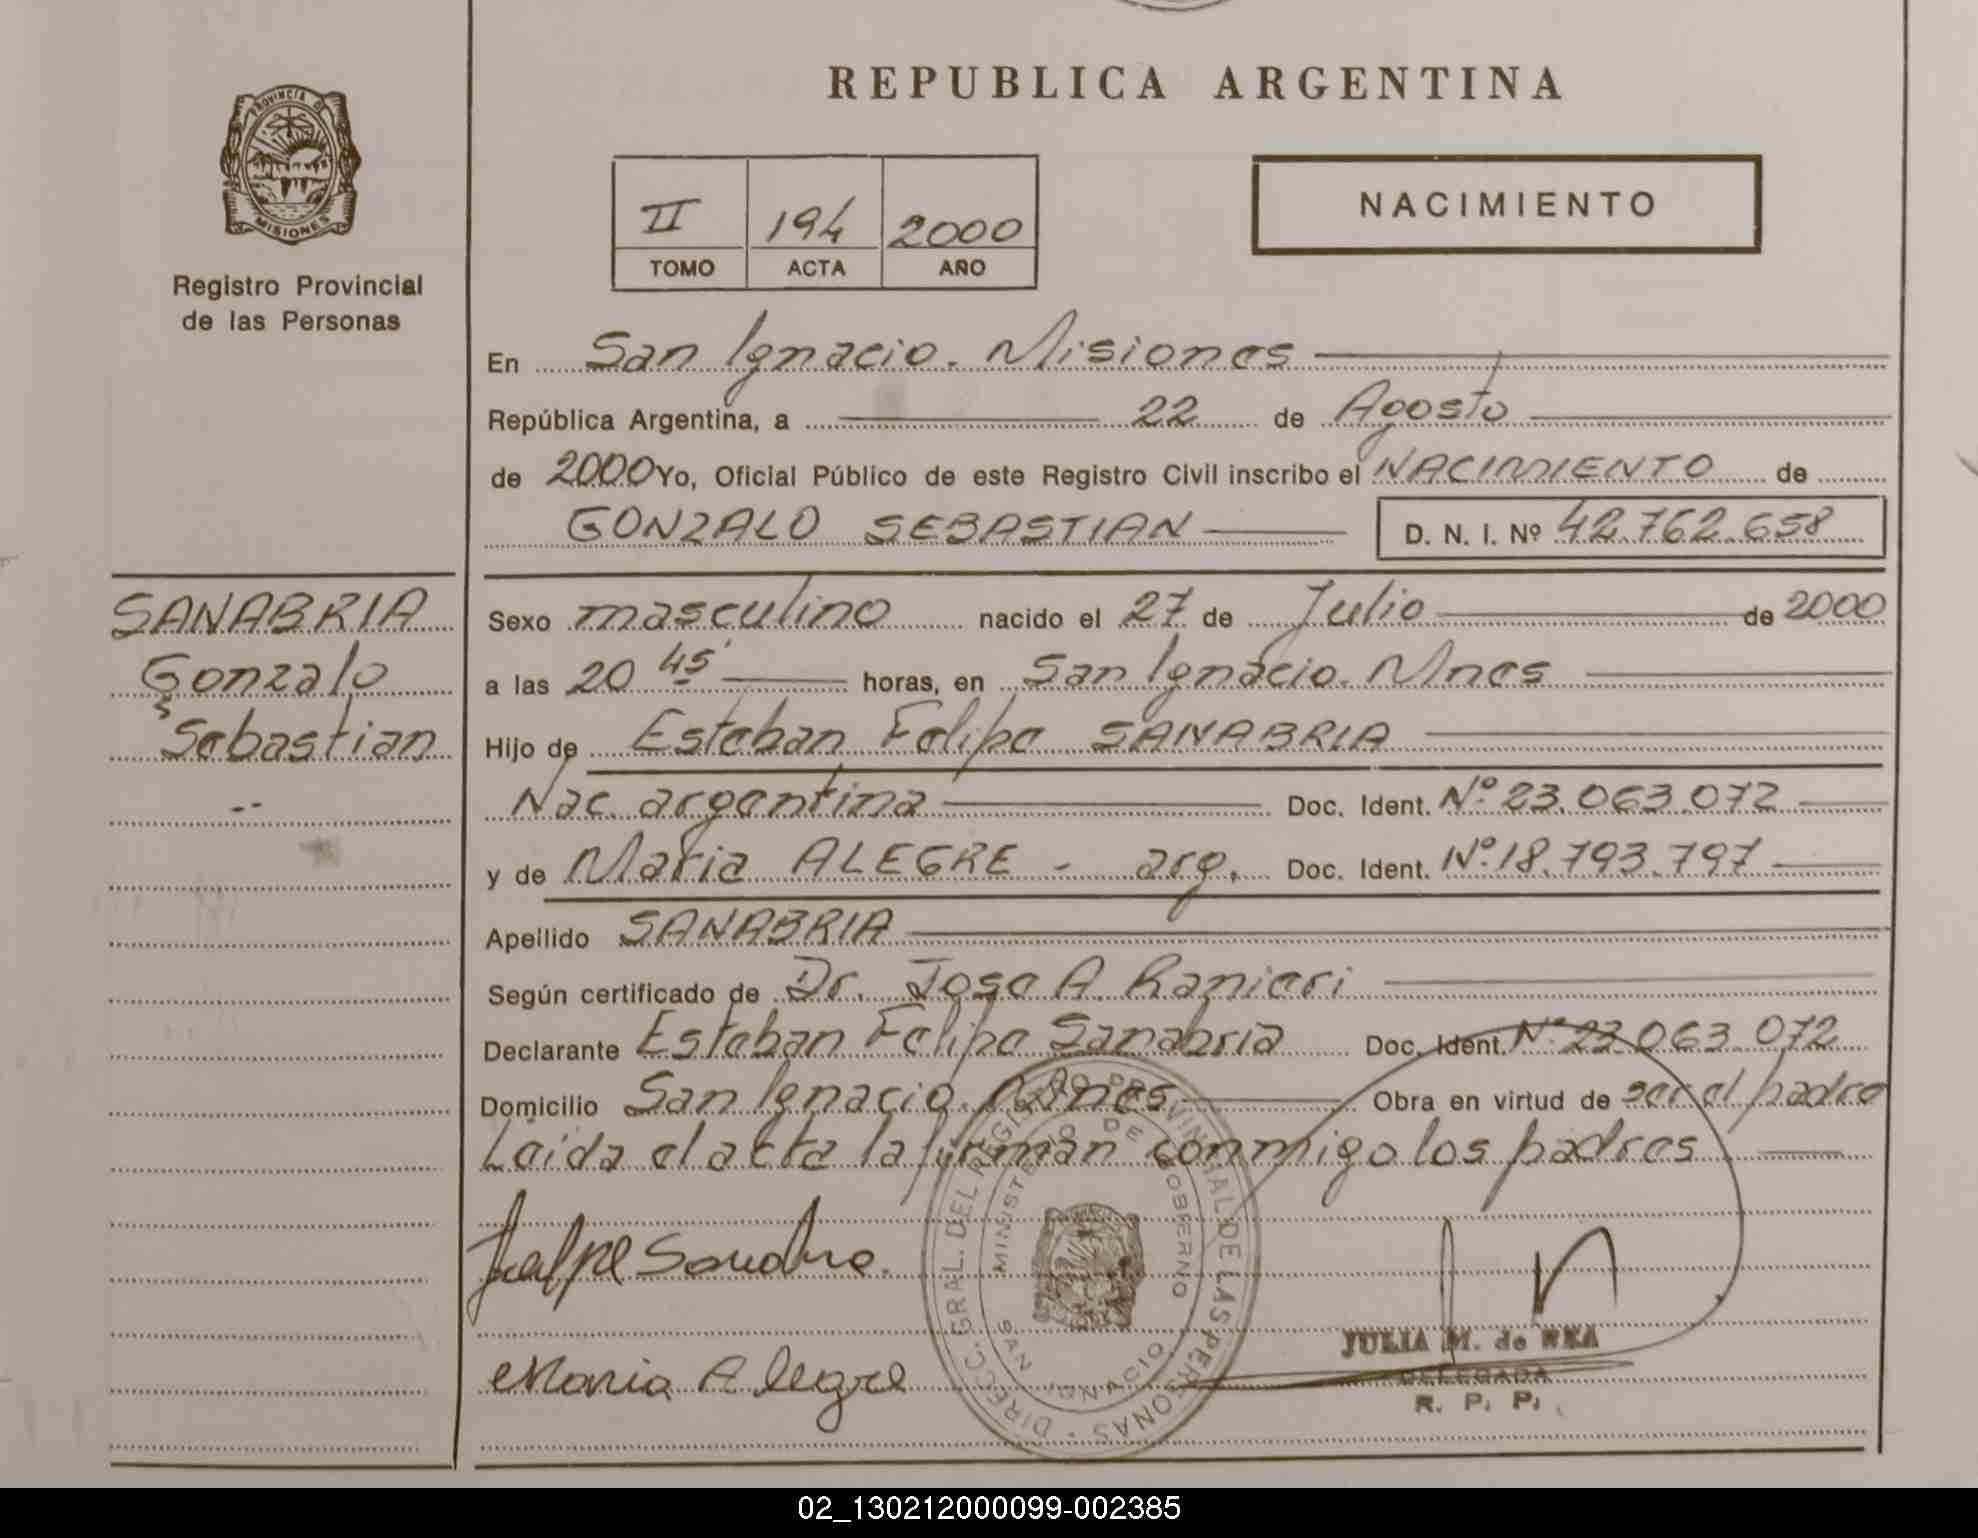 REPUBLICA ARGENTINA
PROVINCIA D
MISIONES
Registro Provincial
de las Personas
II 194 2000
TOMO ACTA AÑO
NACIMIENTO
En San Ignacio. Misiones
República Argentina, a 22 de Agosto
de 2000 Yo, Oficial Público de este Registro Civil inscribo el NACIMIENTO de
GONZALO SEBASTIAN D. N. I. Nº 42.762.658
SANABRIA
Gonzalo
Sebastian
--
Sexo masculino nacido el 27 de Julio de 2000
a las 20 45' horas, en San Ignacio. Mnes
Hijo de Esteban Felipe SANABRIA
Nac. argentina Doc. Ident. Nº 23.063.072
y de Maria ALEGRE - arg. Doc. Ident. Nº 18.793.797
Apellido SANABRIA
Según certificado de Dr. Jose A. Ranieri
Declarante Esteban Felipe Sanabria Doc. Ident. Nº 23.063.072
Domicilio San Ignacio. Mnes Obra en virtud de ser el padre
Leida el acta la firman conmigo los padres
Maria Alegre
DIRECC. GRAL. DEL REGISTRO PROVINCIAL DE LAS PERSONAS
MINISTERIO DE GOBIERNO
SAN IGNACIO
JULIA M. de REA
DELEGADA
R. P. P.
02_130212000099-002385